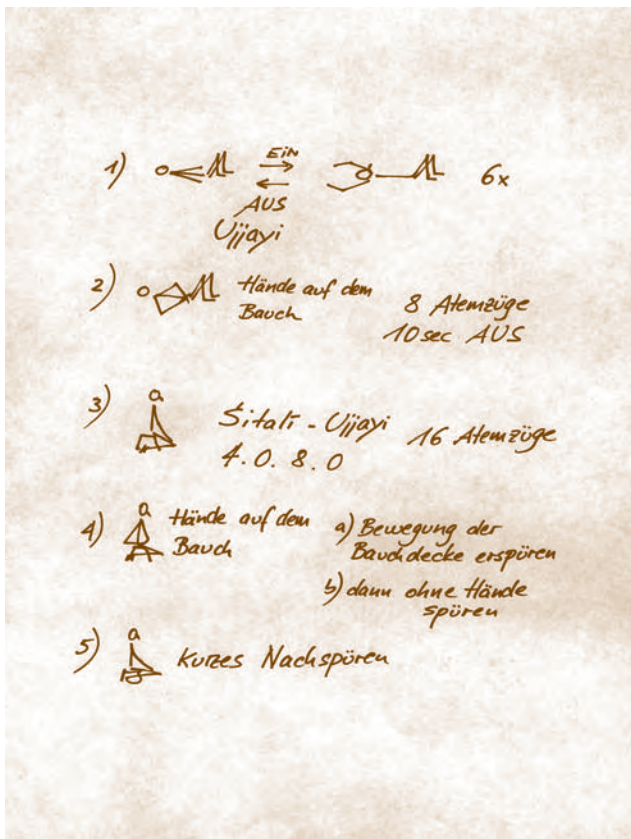 1) EIN 6x
AUS
Ujjayi
2) Hände auf dem
Bauch 8 Atemzüge
10 sec AUS
3) Śitalī - Ujjayi 16 Atemzüge
4. 0. 8. 0
4) Hände auf dem a) Bewegung der
Bauch Bauchdecke erspüren
b) dann ohne Hände
spüren
5) kurzes Nachspüren